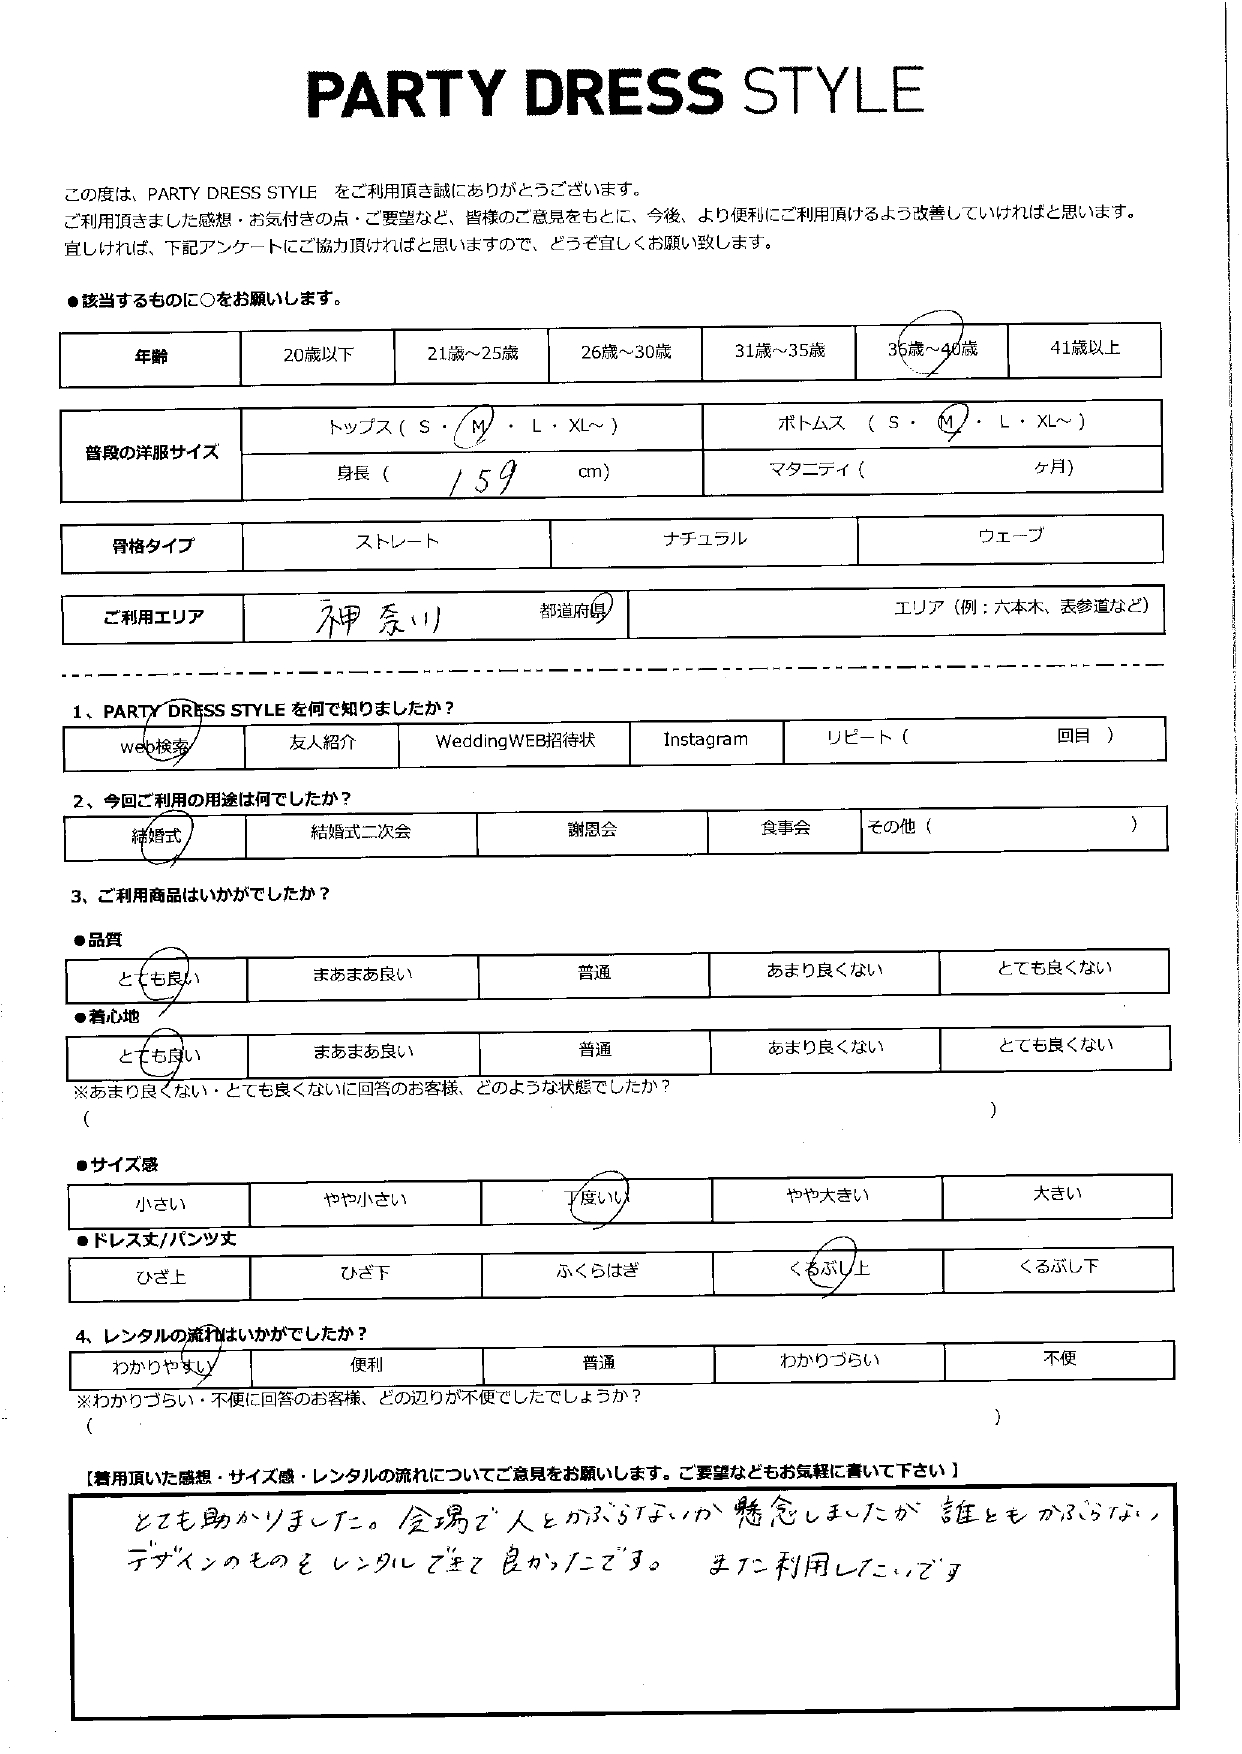 PARTY DRESS STYLE
この度は、PARTY DRESS STYLE をご利用頂き誠にありがとうございます。
ご利用頂きました感想・お気付きの点・ご要望など、皆様のご意見をもとに、今後、より便利にご利用頂けるよう改善していければと思います。
宜しければ、下記アンケートにご協力頂ければと思いますので、どうぞ宜しくお願い致します。
●該当するものに○をお願いします。
年齢 20歳以下 21歳～25歳 26歳～30歳 31歳～35歳 36歳～40歳 41歳以上
普段の洋服サイズ
トップス ( S ・ M ・ L ・ XL～ ) ボトムス ( S ・ M ・ L ・ XL～ )
身長 ( 159 cm) マタニティ ( ヶ月)
骨格タイプ ストレート ナチュラル ウェーブ
ご利用エリア 神奈川 都道府県 エリア (例：六本木、表参道など)
1、PARTY DRESS STYLE を何で知りましたか？
web検索 友人紹介 WeddingWEB招待状 Instagram リピート ( 回目 )
2、今回ご利用の用途は何でしたか？
結婚式 結婚式二次会 謝恩会 食事会 その他 ( )
3、ご利用商品はいかがでしたか？
●品質
とても良い まあまあ良い 普通 あまり良くない とても良くない
●着心地
とても良い まあまあ良い 普通 あまり良くない とても良くない
※あまり良くない・とても良くないに回答のお客様、どのような状態でしたか？
( )
●サイズ感
小さい やや小さい 丁度いい やや大きい 大きい
●ドレス丈/パンツ丈
ひざ上 ひざ下 ふくらはぎ くるぶし上 くるぶし下
4、レンタルの流れはいかがでしたか？
わかりやすい 便利 普通 わかりづらい 不便
※わかりづらい・不便に回答のお客様、どの辺りが不便でしたでしょうか？
( )
【着用頂いた感想・サイズ感・レンタルの流れについてご意見をお願いします。ご要望などもお気軽に書いて下さい】
とても助かりました。会場で人とかぶらないか懸念しましたが 誰ともかぶらない
デザインのものをレンタルできて良かったです。 また利用したいです